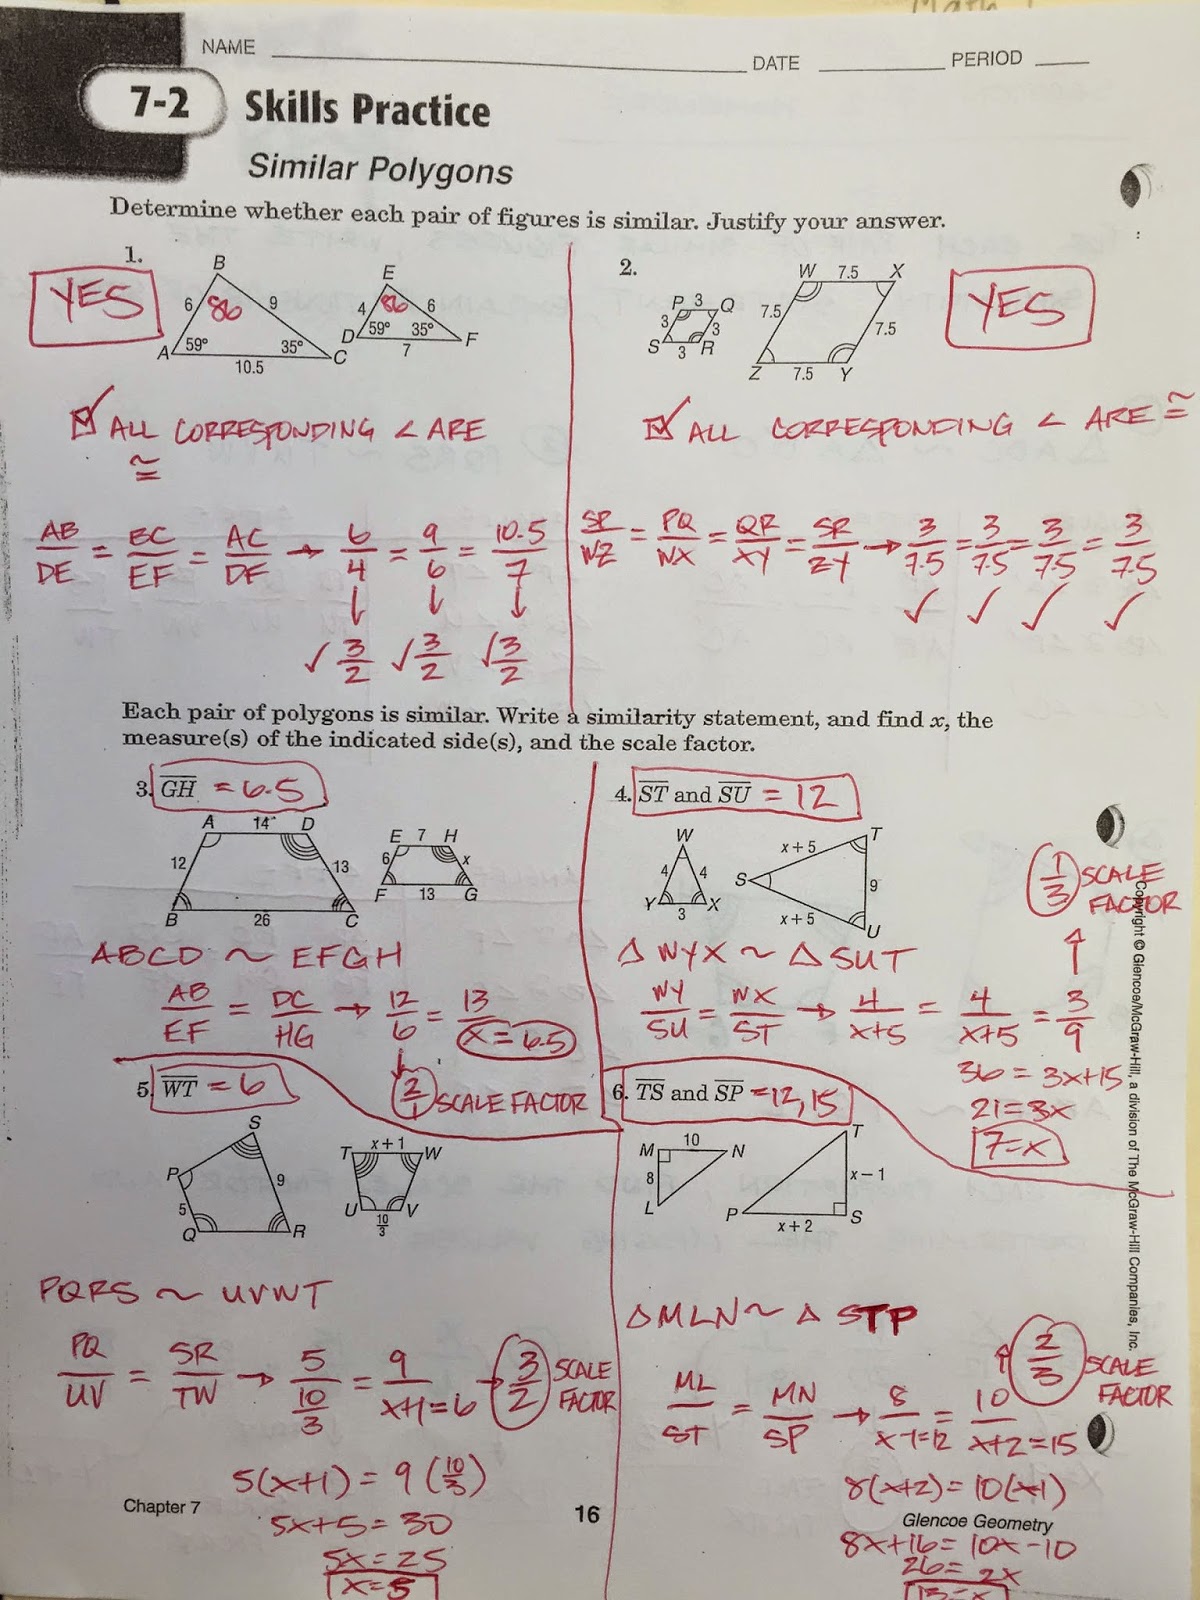 Math
NAME DATE PERIOD
7-2 Skills Practice
Similar Polygons
Determine whether each pair of figures is similar. Justify your answer.
1.
YES
B
6 86 9
A 59° 35° C
10.5
E
4 86 6
D 59° 35° F
7
☑ ALL CORRESPONDING < ARE
≅
AB/DE = BC/EF = AC/DF → 6/4 = 9/6 = 10.5/7
↓ ↓ ↓
✓ 3/2 ✓ 3/2 ✓ 3/2
2.
P 3 Q
3 3
S 3 R
W 7.5 X
7.5 7.5
Z 7.5 Y
YES
☑ ALL CORRESPONDING < ARE ≅
SP/WZ = PQ/WX = QR/XY = SR/ZY → 3/7.5 = 3/7.5 = 3/7.5 = 3/7.5
✓ ✓ ✓ ✓
Each pair of polygons is similar. Write a similarity statement, and find x, the
measure(s) of the indicated side(s), and the scale factor.
3. GH = 6.5
A 14 D
12 13
B 26 C
E 7 H
6 x
F 13 G
ABCD ~ EFGH
AB/EF = DC/HG → 12/6 = 13/x = 6.5
↓
2/1 SCALE FACTOR
4. ST and SU = 12
W
4 4
Y 3 X
T
x + 5
S 9
x + 5
U
1/3 SCALE
FACTOR
↑
△ WYX ~ △ SUT
WY/SU = WX/ST → 4/x+5 = 4/x+5 = 3/9
36 = 3x+15
21 = 3x
7 = x
5. WT = 6
S
P 9
5
Q R
T x + 1 W
U V
10/3
PQRS ~ UVWT
PQ/UV = SR/TW → 5/(10/3) = 9/x+1=6 → 3/2 SCALE
FACTOR
5(x+1) = 9(10/3)
5x+5 = 30
5x = 25
x = 5
6. TS and SP = 12, 15
M 10 N
8
L
T
x − 1
P S
x + 2
△MLN ~ △ STP
2/3 SCALE
FACTOR
ML/ST = MN/SP → 8/x-1=12 = 10/x+2=15
8(x+2) = 10(x-1)
8x+16 = 10x-10
26 = 2x
13 = x
Chapter 7 16 Glencoe Geometry
Copyright © Glencoe/McGraw-Hill, a division of The McGraw-Hill Companies, Inc.